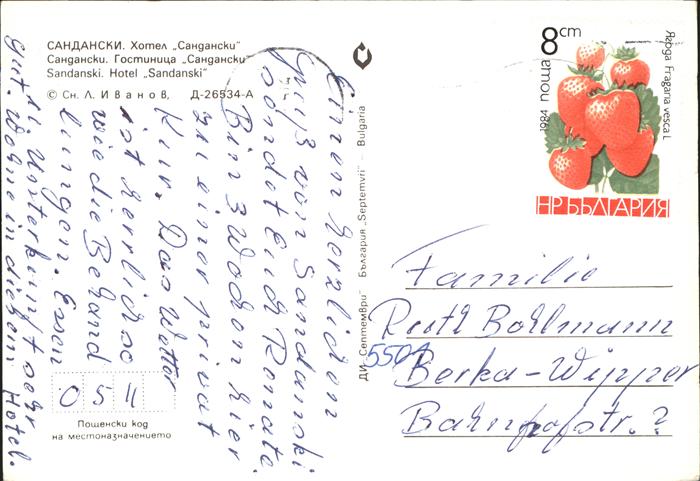 САНДАНСКИ. Хотел „Сандански“
Сандански. Гостиница „Сандански“
Sandanski. Hotel „Sandanski“
© Сн. Л. Иванов, Д-26534-А
Einen herzlichen
Gruß von Sandanski
sendet Euch Renate.
Bin 3 Wochen hier
zu einer privat
Kur. Das Wetter
ist herrlich so
wie die Behand
lungen. Essen
u. Unterkunft sehr
gut. Wohne in diesem Hotel.
0511
Пощенски код
на местоназначението
ДИ „Септември“ България „Septemvri“ - Bulgaria
8 cm
1984 поща
Ягода Fragaria vesca L.
НР БЪЛГАРИЯ
Familie
Bohlmann
5501
Berka-Wipper
Bahnhofstr. 2